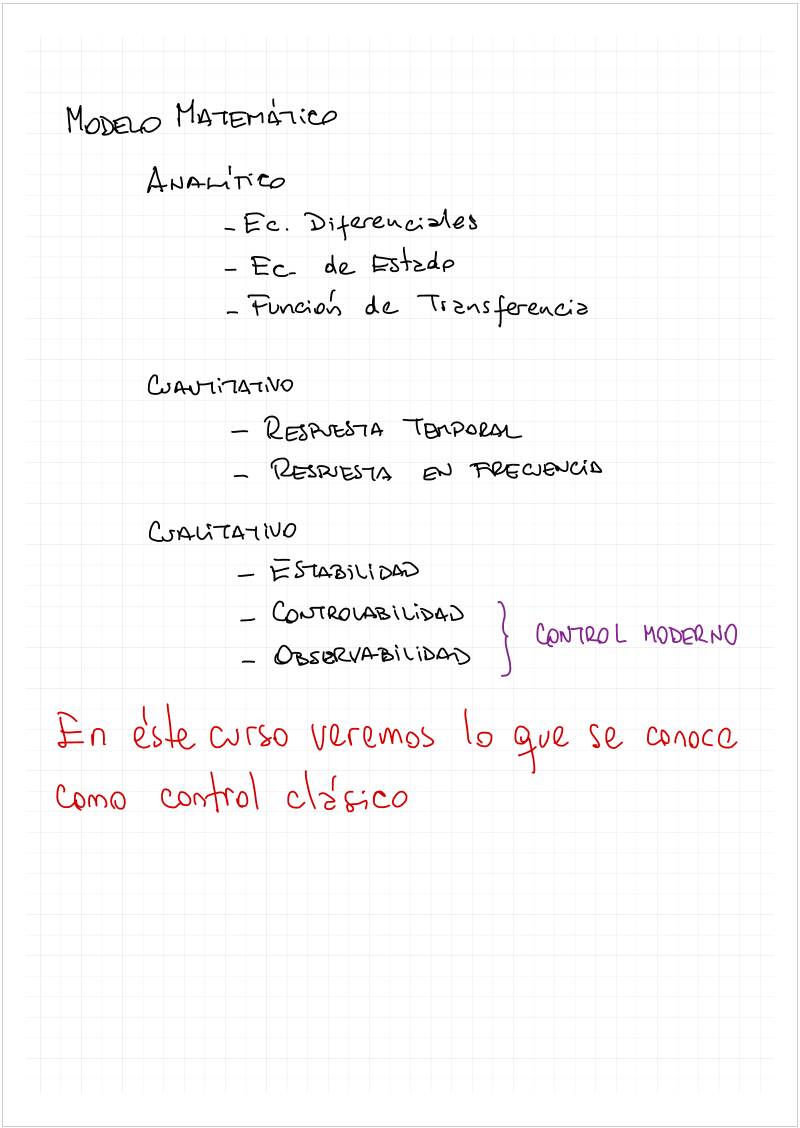 MODELO MATEMÁTICO
ANALÍTICO
- Ec. Diferenciales
- Ec. de Estado
- Función de Transferencia
CUANTITATIVO
- RESPUESTA TEMPORAL
- RESPUESTA EN FRECUENCIA
CUALITATIVO
- ESTABILIDAD
- CONTROLABILIDAD
- OBSERVABILIDAD
} CONTROL MODERNO
En éste curso veremos lo que se conoce
como control clásico